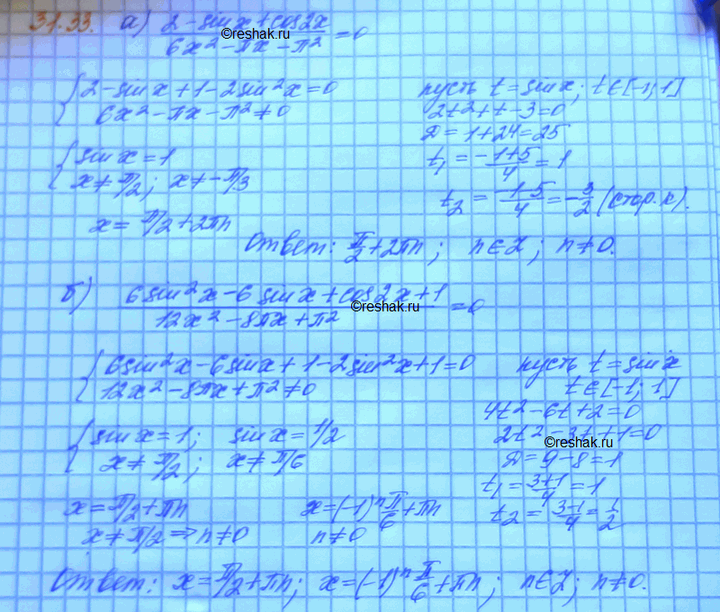 31.33. а) (2 - sinx + cos2x)/(6x² - πx - π²) = 0
©reshak.ru
{ 2 - sinx + 1 - 2sin²x = 0
6x² - πx - π² ≠ 0
пусть t = sinx; t∈[-1; 1]
2t² + t - 3 = 0
D = 1 + 24 = 25
t₁ = (-1+5)/4 = 1
t₂ = (-1-5)/4 = -3/2 (стор. к).
{ sinx = 1
x ≠ π/2; x ≠ -π/3
x = π/2 + 2πn
Ответ: π/2 + 2πn; n∈Z; n ≠ 0.
б) (6sin²x - 6sinx + cos2x + 1)/(12x² - 8πx + π²) = 0
©reshak.ru
{ 6sin²x - 6sinx + 1 - 2sin²x + 1 = 0
12x² - 8πx + π² ≠ 0
пусть t = sinx
t∈[-1; 1]
4t² - 6t + 2 = 0
2t² - 3t + 1 = 0
©reshak.ru
D = 9 - 8 = 1
t₁ = (3+1)/4 = 1
t₂ = (3-1)/4 = 1/2
{ sinx = 1; sinx = 1/2
x ≠ π/2; x ≠ π/6
x = π/2 + πn x = (-1)ⁿ π/6 + πn
x ≠ π/2 => n ≠ 0 n ≠ 0
Ответ: x = π/2 + πn; x = (-1)ⁿ π/6 + πn; n∈Z; n ≠ 0.